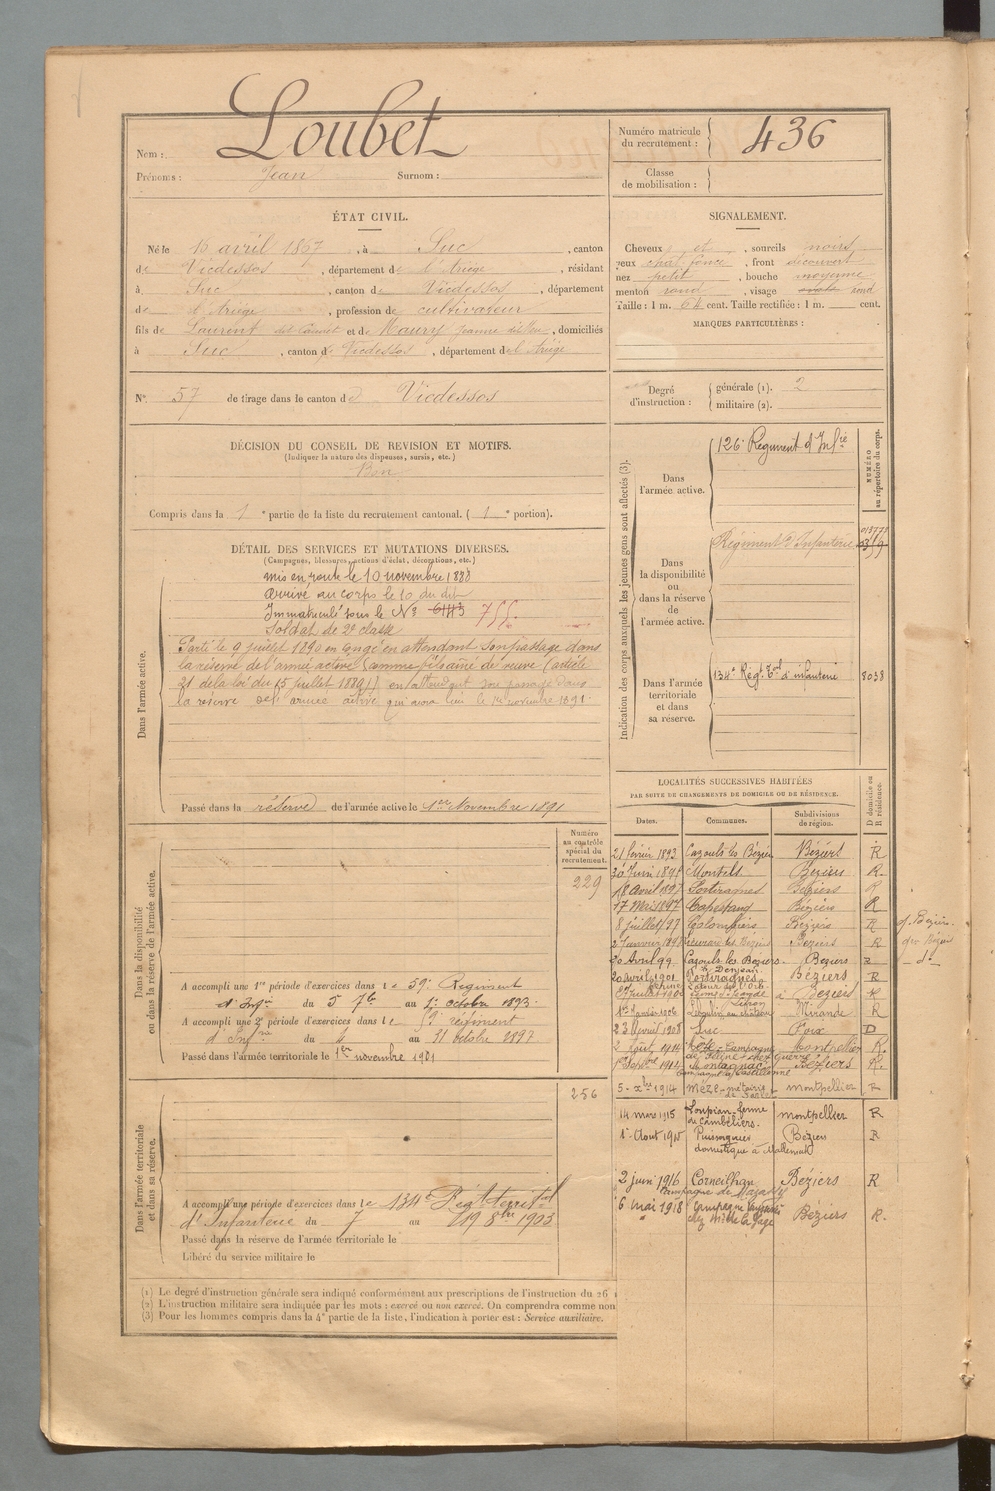 Loubet
Nom :
Prénoms : Jean Surnom :
Numéro matricule
du recrutement :
436
Classe
de mobilisation :
ÉTAT CIVIL.
Né le 16 avril 1867, à Suc, canton
de Vicdessos, département de l'Ariège, résidant
à Suc, canton de Vicdessos, département
de l'Ariège, profession de cultivateur
fils de Laurent et de Maury Jeanne, domiciliés
à Suc, canton de Vicdessos, département de l'Ariège
SIGNALEMENT.
Cheveux et, sourcils noirs
yeux chat foncé, front découvert
nez petit, bouche moyenne
menton rond, visage ovale rond
Taille : 1 m. 64 cent. Taille rectifiée : 1 m. cent.
MARQUES PARTICULIÈRES :
N° 57 de tirage dans le canton de Vicdessos
Degré
d'instruction :
générale (1). 2
militaire (2).
DÉCISION DU CONSEIL DE REVISION ET MOTIFS.
(Indiquer la nature des dispenses, sursis, etc.)
Bon
Compris dans la 1e partie de la liste du recrutement cantonal. (1e portion).
DÉTAIL DES SERVICES ET MUTATIONS DIVERSES.
(Campagnes, blessures, actions d'éclat, décorations, etc.)
Dans l'armée active.
mis en route le 10 novembre 1888
arrivé au corps le 10 du dit
Immatriculé sous le N° 755
Soldat de 2e classe
Parti le 9 juillet 1890 en congé en attendant son passage dans
la réserve de l'armée active (comme fils aîné de veuve (article
21 de la loi du 15 juillet 1889)) en attendant son passage dans
la réserve de l'armée active qui aura lieu le 1er novembre 1891.
Passé dans la réserve de l'armée active le 1er Novembre 1891
Indication des corps auxquels les jeunes gens sont affectés (3).
NUMÉRO
au répertoire du corps.
Dans
l'armée active.
126e Régiment d'Infie
Dans
la disponibilité
ou dans la réserve
de
l'armée active.
Régiment d'Infanterie
Dans l'armée
territoriale
et dans
sa réserve.
134e Régt Tal d'infanterie
8038
Dans la disponibilité
ou dans la réserve de l'armée active.
Numéro
au contrôle
spécial du
recrutement.
229
A accompli une 1re période d'exercices dans le 59e Régiment
d'Infie du 5 7bre au 1er octobre 1893.
A accompli une 2e période d'exercices dans le régiment
d'Infrie du 4 au 31 octobre 1897
Passé dans l'armée territoriale le 1er novembre 1901
Dans l'armée territoriale
et dans sa réserve.
256
A accompli une période d'exercices dans le 134e Régt territal
d'Infanterie du 7 au 19 8bre 1903
Passé dans la réserve de l'armée territoriale le
Libéré du service militaire le
LOCALITÉS SUCCESSIVES HABITÉES
PAR SUITE DE CHANGEMENTS DE DOMICILE OU DE RÉSIDENCE.
Dates. Communes. Subdivisions
de région. D domicile ou
R résidence.
21 février 1893 Cazouls les Béziers Béziers R
Montels Béziers R.
18 avril 1897 Portiragnes Béziers R
17 Mai 1897 Capestang Béziers R
8 juillet 97 Colombiers Béziers R
Béziers R
20 Avril 99 Cazouls les Béziers. Béziers R
20 avril 1901 Portiragnes Béziers R
Béziers R
1er janvier 1906 Mirande R
23 Avril 1908 Suc Foix D
2 Août 1914 Montpellier R.
1er Septbre 1914 Montagnac Béziers R.
5 xbre 1914 Mèze montpellier R
14 mars 1915 Loupian-ferme
de Cambéliers. montpellier R
1er Aout 1915 Puisserguier
domestique à Mallemort Béziers R
2 juin 1916 Corneilhan Béziers R
6 mai 1918 Campagne Béziers R.
d. Béziers.
do Béziers
do
(1) Le degré d'instruction générale sera indiqué conformément aux prescriptions de l'instruction du 26
(2) L'instruction militaire sera indiquée par les mots : exercé ou non exercé. On comprendra comme non
(3) Pour les hommes compris dans la 4e partie de la liste, l'indication à porter est : Service auxiliaire.